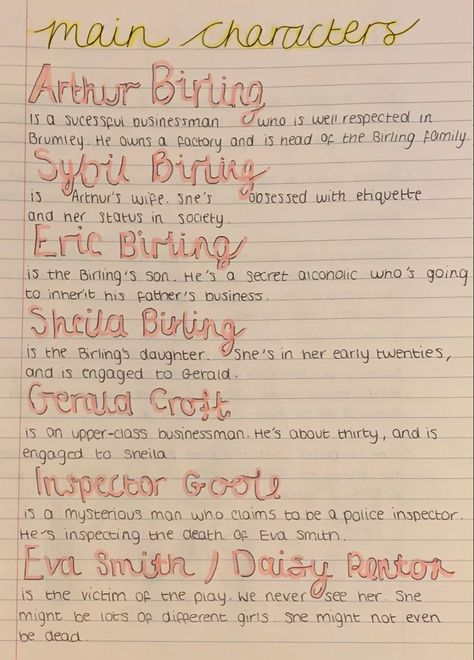 main characters
Arthur Birling
is a sucessful businessman who is well respected in
Brumley. He owns a factory and is head of the Birling family
Sybil Birling
is Arthur's wife. She's obsessed with etiquette
and her status in society.
Eric Birling
is the Birling's son. He's a secret alcoholic who's going
to inherit his father's business.
Sheila Birling
is the Birling's daughter. She's in her early twenties,
and is engaged to Gerald.
Gerald Croft
is an upper-class businessman. He's about thirty, and is
engaged to Sheila
Inspector Goole
is a mysterious man who claims to be a police inspector.
He's inspecting the death of Eva Smith.
Eva Smith / Daisy Renton
is the victim of the play. We never see her. She
might be lots of different girls. She might not even
be dead.